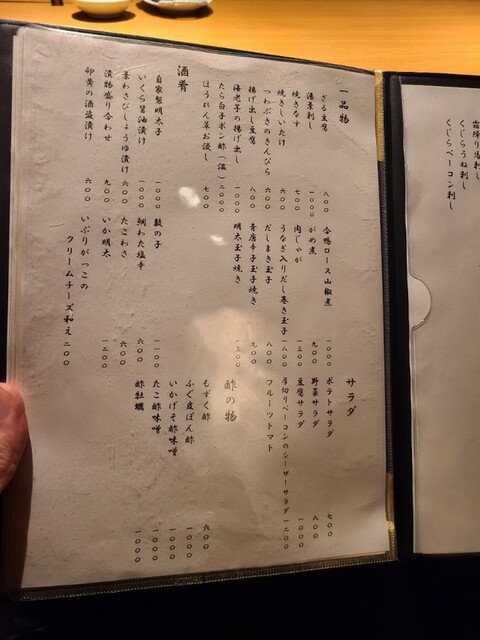 霜降り馬刺し
くじらうね刺し
くじらベーコン刺し
一品物
ざる豆腐 八〇〇
湯葉刺し 一〇〇〇
焼きなす 七〇〇
焼きしいたけ 六〇〇
つわぶきのきんぴら 六〇〇
揚げ出し豆腐 八〇〇
海老芋の揚げ出し 一〇〇〇
たら白子ポン酢(温) 二〇〇〇
ほうれん草お浸し 七〇〇
合鴨ロース山椒煮 一〇〇〇
がめ煮 九〇〇
肉じゃが
うなぎ入りだし巻き玉子 一八〇〇
だしまき玉子 八〇〇
青唐辛子玉子焼き 九〇〇
明太玉子焼き 一三〇〇
酒肴
自家製明太子
いくら醤油漬け 一〇〇〇
葉わさびしょうゆ漬け 六〇〇
漬物盛り合わせ 九〇〇
卵黄の酒盗漬け 六〇〇
数の子 一一〇〇
鯛わた塩辛 六〇〇
たこわさ 六〇〇
いか明太 一二〇〇
いぶりがっこの
クリームチーズ和え
サラダ
ポテトサラダ 七〇〇
野菜サラダ 八〇〇
豆腐サラダ 一〇〇〇
厚切りベーコンのシーザーサラダ 一二〇〇
フルーツトマト
酢の物
もずく酢 六〇〇
ふぐ皮ぽん酢 一〇〇〇
いかげそ酢味噌 一〇〇〇
たこ酢味噌 一〇〇〇
酢牡蠣 一〇〇〇